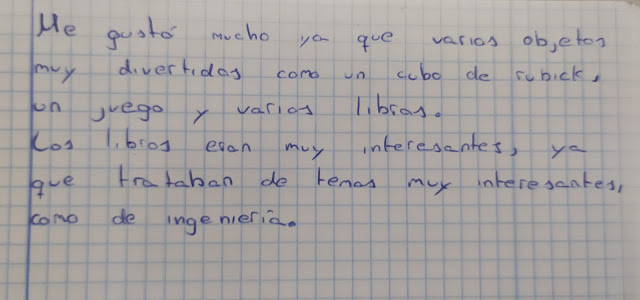 Me gustó mucho ya que varios objetos
muy divertidos como un cubo de rubick,
un juego y varios libros.
Los libros eran muy interesantes, ya
que trataban de temas muy interesantes,
como de ingenieria.